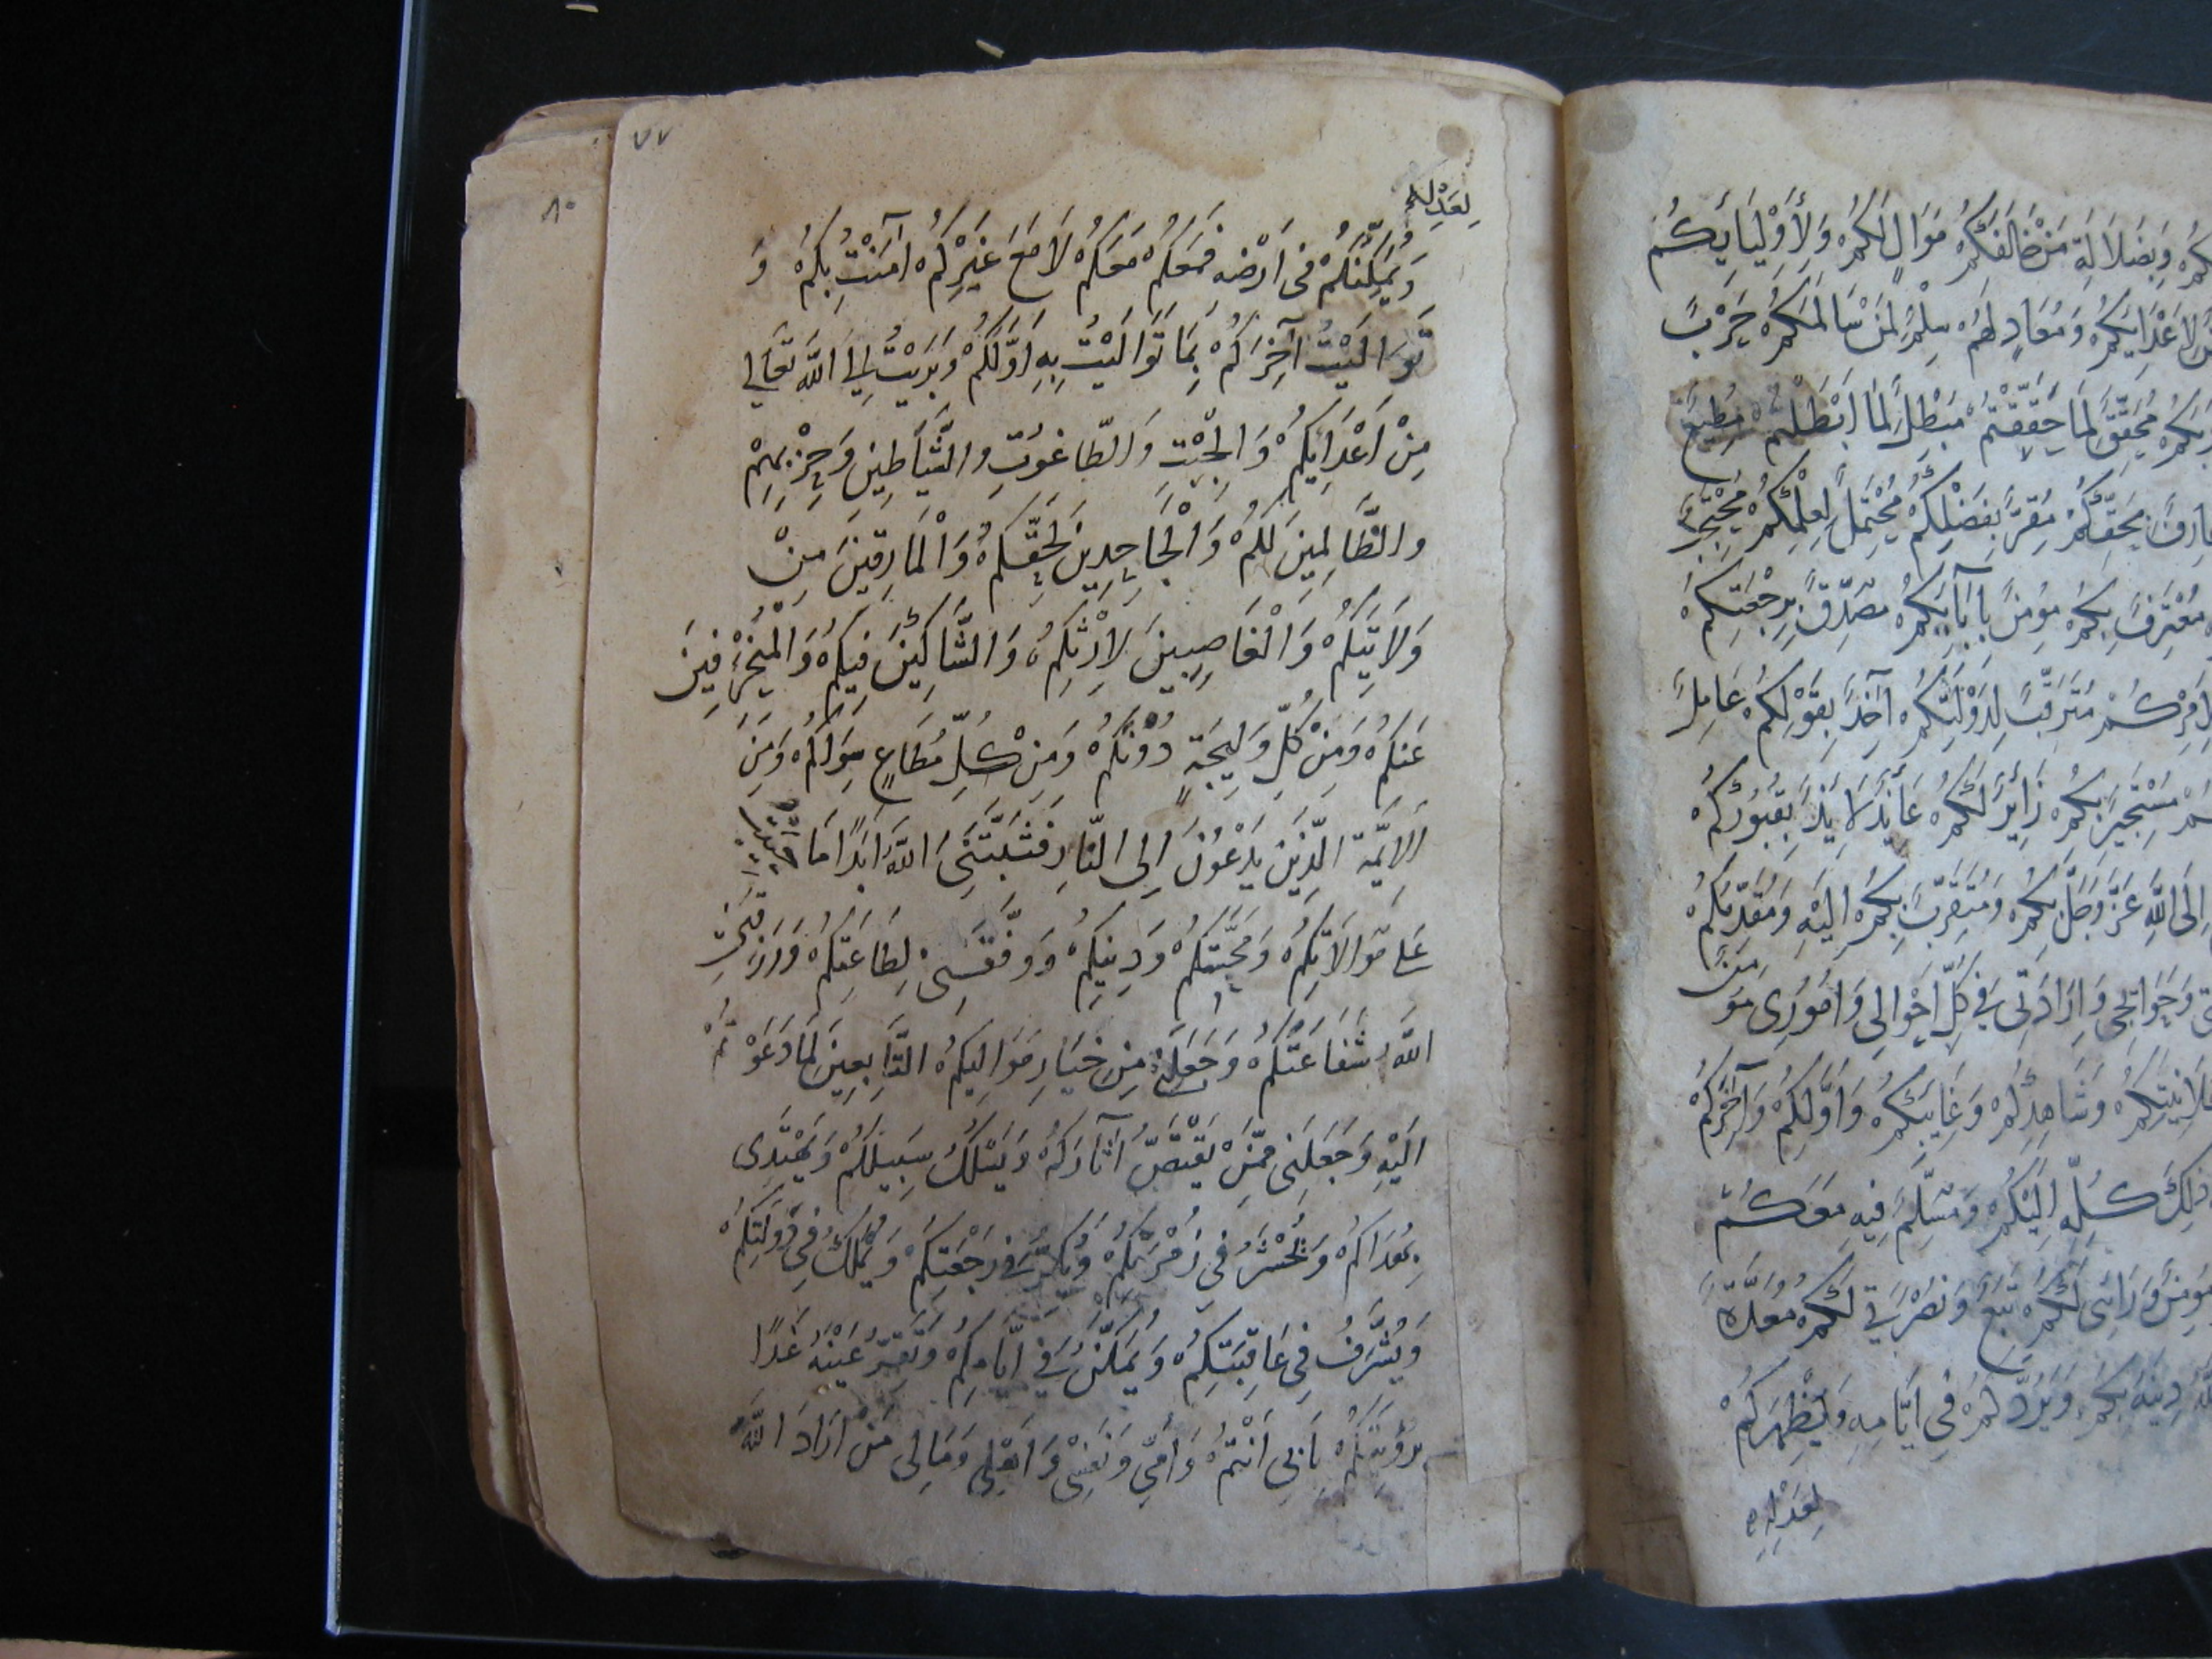 كُمْ وَبِضَلَالَةِ مَنْ خَالَفَكُمْ مُوَالٍ لَكُمْ وَلِأَوْلِيَايِكُمْ
لِأَعْدَايِكُمْ وَمُعَادٍ لَهُمْ سِلْمٌ لِمَنْ سَالَمَكُمْ حَرْبٌ
مُحَقِّقٌ لِمَا حَقَّقْتُمْ مُبْطِلٌ لِمَا اَبْطَلْتُمْ مُطِيعٌ
عَارِفٌ بِحَقِّكُمْ مُقِرٌّ بِفَضْلِكُمْ مُحْتَمِلٌ لِعِلْمِكُمْ مُحْتَجِبٌ
مُعْتَرِفٌ بِكُمْ مُؤْمِنٌ بِاِيَابِكُمْ مُصَدِّقٌ بِرَجْعَتِكُمْ
مُرْتَقِبٌ لِدَوْلَتِكُمْ آخِذٌ بِقَوْلِكُمْ عَامِلٌ
مُسْتَجِيرٌ بِكُمْ زَايِرٌ لَكُمْ عَايِذٌ لَايِذٌ بِقُبُورِكُمْ
اِلَى اللّٰهِ عَزَّ وَجَلَّ بِكُمْ وَمُتَقَرِّبٌ بِكُمْ اِلَيْهِ وَمُقَدِّمُكُمْ
وَحَوَايِجِي وَاِرَادَتِي فِي كُلِّ اَحْوَالِي وَاُمُورِي مُؤْمِنٌ
عَلَانِيَتِكُمْ وَشَاهِدِكُمْ وَغَايِبِكُمْ وَاَوَّلِكُمْ وَآخِرِكُمْ
ذٰلِكَ كُلِّهِ اِلَيْكُمْ وَمُسَلِّمٌ فِيهِ مَعَكُمْ
مُؤْمِنٌ وَرَائِى لَكُمْ تَبَعٌ وَنُصْرَتِي لَكُمْ مُعَدَّةٌ
دِينَهُ بِكُمْ وَيَرُدَّكُمْ فِى اَيَّامِهِ وَيُظْهِرَكُمْ
لِعَدْلِهِ
٧٧
٨٠
لِعَدْلِهِ
وَيُمَكِّنَكُمْ فِى اَرْضِهِ فَمَعَكُمْ مَعَكُمْ لَا مَعَ غَيْرِكُمْ آمَنْتُ بِكُمْ وَ
تَوَالَيْتُ آخِرَكُمْ بِمَا تَوَالَيْتُ بِهِ اَوَّلَكُمْ وَبَرِيْتُ اِلَى اللّٰهِ تَعَالٰى
مِنْ اَعْدَايِكُمْ وَالْجِبْتِ وَالطَّاغُوتِ وَالشَّيَاطِينِ وَحِزْبِهِمْ
وَالظَّالِمِينَ لَكُمْ وَالْجَاحِدِينَ لِحَقِّكُمْ وَالْمَارِقِينَ مِنْ
وَلَايَتِكُمْ وَالْغَاصِبِينَ لِاِرْثِكُمْ وَالشَّاكِّينَ فِيكُمْ وَالْمُنْحَرِفِينَ
عَنْكُمْ وَمِنْ كُلِّ وَلِيجَةٍ دُونَكُمْ وَمِنْ كُلِّ مُطَاعٍ سِوَاكُمْ وَمِنَ
الْاَيِمَّةِ الَّذِينَ يَدْعُونَ اِلَى النَّارِ فَثَبَّتَنِىَ اللّٰهُ اَبَدًا مَا حَيِيتُ
عَلٰى مُوَالَاتِكُمْ وَمَحَبَّتِكُمْ وَدِينِكُمْ وَوَفَّقَنِى لِطَاعَتِكُمْ وَرَزَقَنِى
اللّٰهُ شَفَاعَتَكُمْ وَجَعَلَنِى مِنْ خِيَارِ مَوَالِيكُمْ التَّابِعِينَ لِمَا دَعَوْتُمْ
اِلَيْهِ وَجَعَلَنِى مِمَّنْ يَقْتَصُّ آثَارَكُمْ وَيَسْلُكُ سَبِيلَكُمْ وَيَهْتَدِى
بِهُدَاكُمْ وَيُحْشَرُ فِى زُمْرَتِكُمْ وَيُكَرُّ فِى رَجْعَتِكُمْ وَيُمَلَّكُ فِى دَوْلَتِكُمْ
وَيُشَرَّفُ فِى عَاقِبَتِكُمْ وَيُمَكَّنُ فِي اَيَّامِكُمْ وَتَقِرُّ عَيْنُهُ غَدًا
بِرُؤْيَتِكُمْ بِاَبِى اَنْتُمْ وَاُمِّى وَنَفْسِى وَاَهْلِى وَمَالِى مَنْ اَرَادَ اللّٰهَ